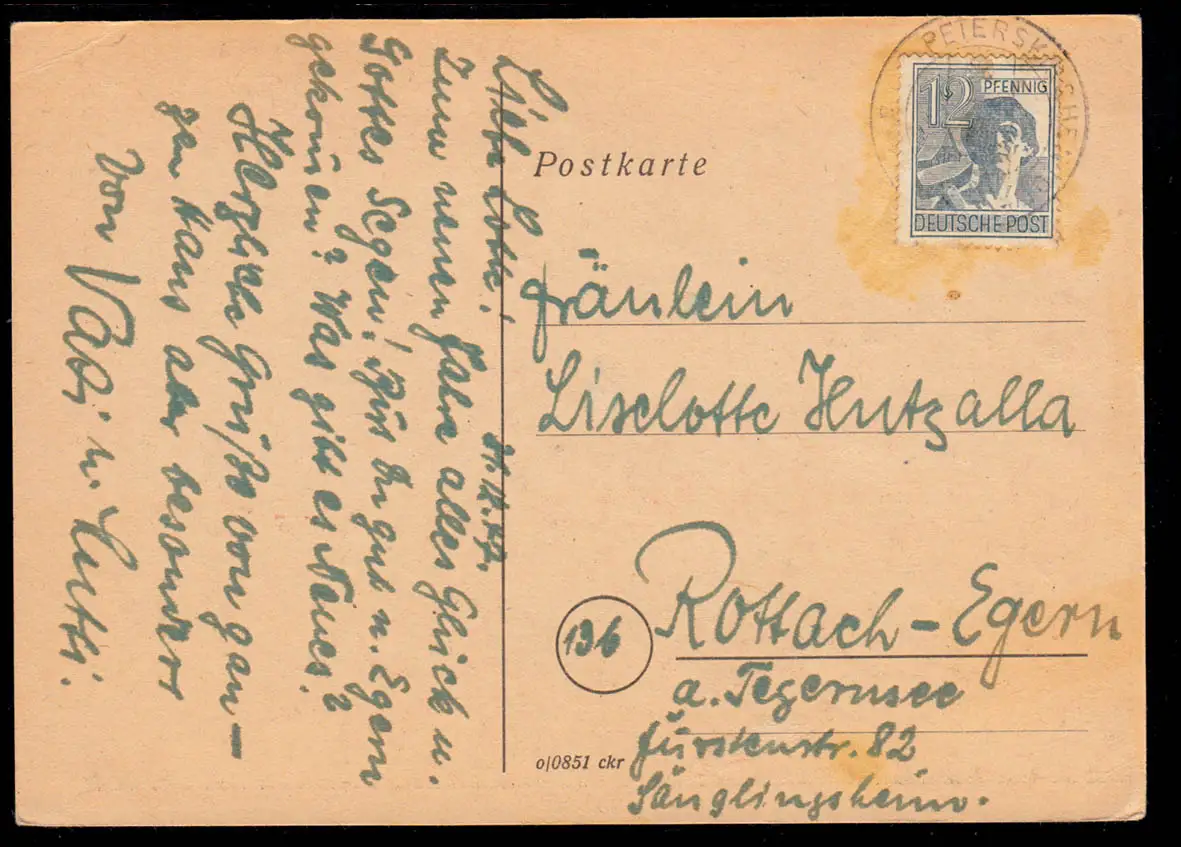 Postkarte
PETERSKIRCHEN
12 PFENNIG
DEUTSCHE POST
Fräulein
Liselotte Hutzalla
13b
Rottach-Egern
a. Tegernsee
Fürstenstr. 82
Säuglingsheim.
o/0851 ckr
31.12.47.
Liebe Lotte!
Zum neuen Jahre alles Glück u.
Gottes Segen! Bist Du gut n. Egern
gekommen? Was gibt es Neues?
Herzliche Grüße von gan-
zen Haus aber besonders
von Vati u. Mutti.